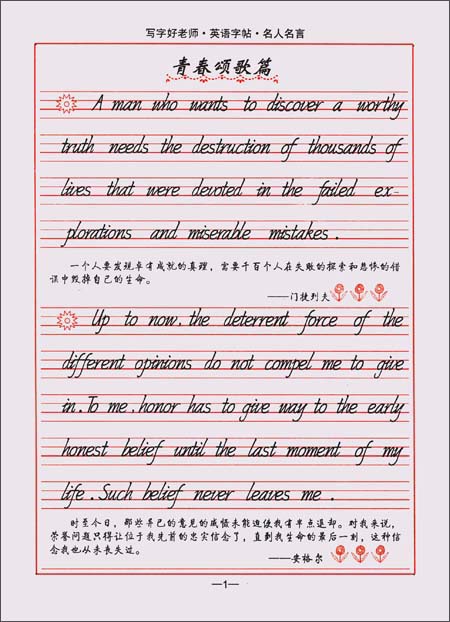 写字好老师·英语字帖·名人名言
青春颂歌篇
A man who wants to discover a worthy
truth needs the destruction of thousands of
lives that were devoted in the failed ex-
plorations and miserable mistakes.
一个人要发现卓有成就的真理，需要千百个人在失败的探索和悲惨的错
误中毁掉自己的生命。
——门捷列夫
Up to now, the deterrent force of the
different opinions do not compel me to give
in. To me, honor has to give way to the early
honest belief until the last moment of my
life. Such belief never leaves me.
时至今日，那些异己的意见的威慑未能迫使我有半点退却。对我来说，
荣誉问题只得让位于我先前的忠实信念了，直到我生命的最后一刻，这种信
念我也从未丧失过。
——安格尔
—1—